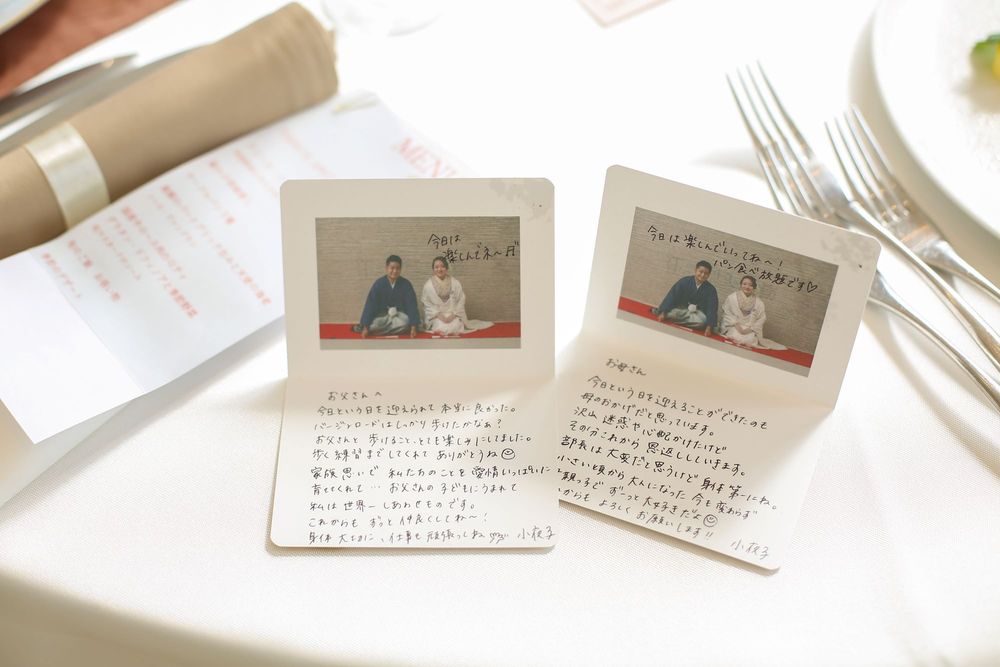 MENU
今日は
楽しんでネ〜♬
お父さんへ
今日という日を迎えられて本当に良かった。
バージンロードはしっかり歩けたかなぁ?
お父さんと歩けること、とても楽しみにしてました。
歩く練習までしてくれてありがとうね☺
家族思いで私たちのことを愛情いっぱいに
育ててくれて…お父さんの子どもにうまれて
私は世界一しあわせものです。
これからもずっと仲良くしてね〜!
身体大切に、仕事も頑張ってね♡♡ 小夜子
今日は楽しんでいってね〜!
パン食べ放題です♡
お母さん
今日という日を迎えることができたのも
母のおかげだと思っています。
沢山迷惑や心配かけたけど
その分これから恩返ししていきます。
部長は大変だと思うけど身体第一にね。
小さい頃から大人になった今も変わらず
親っ子でずーっと大好きだよ☺
からもよろしくお願いします!!
小夜子